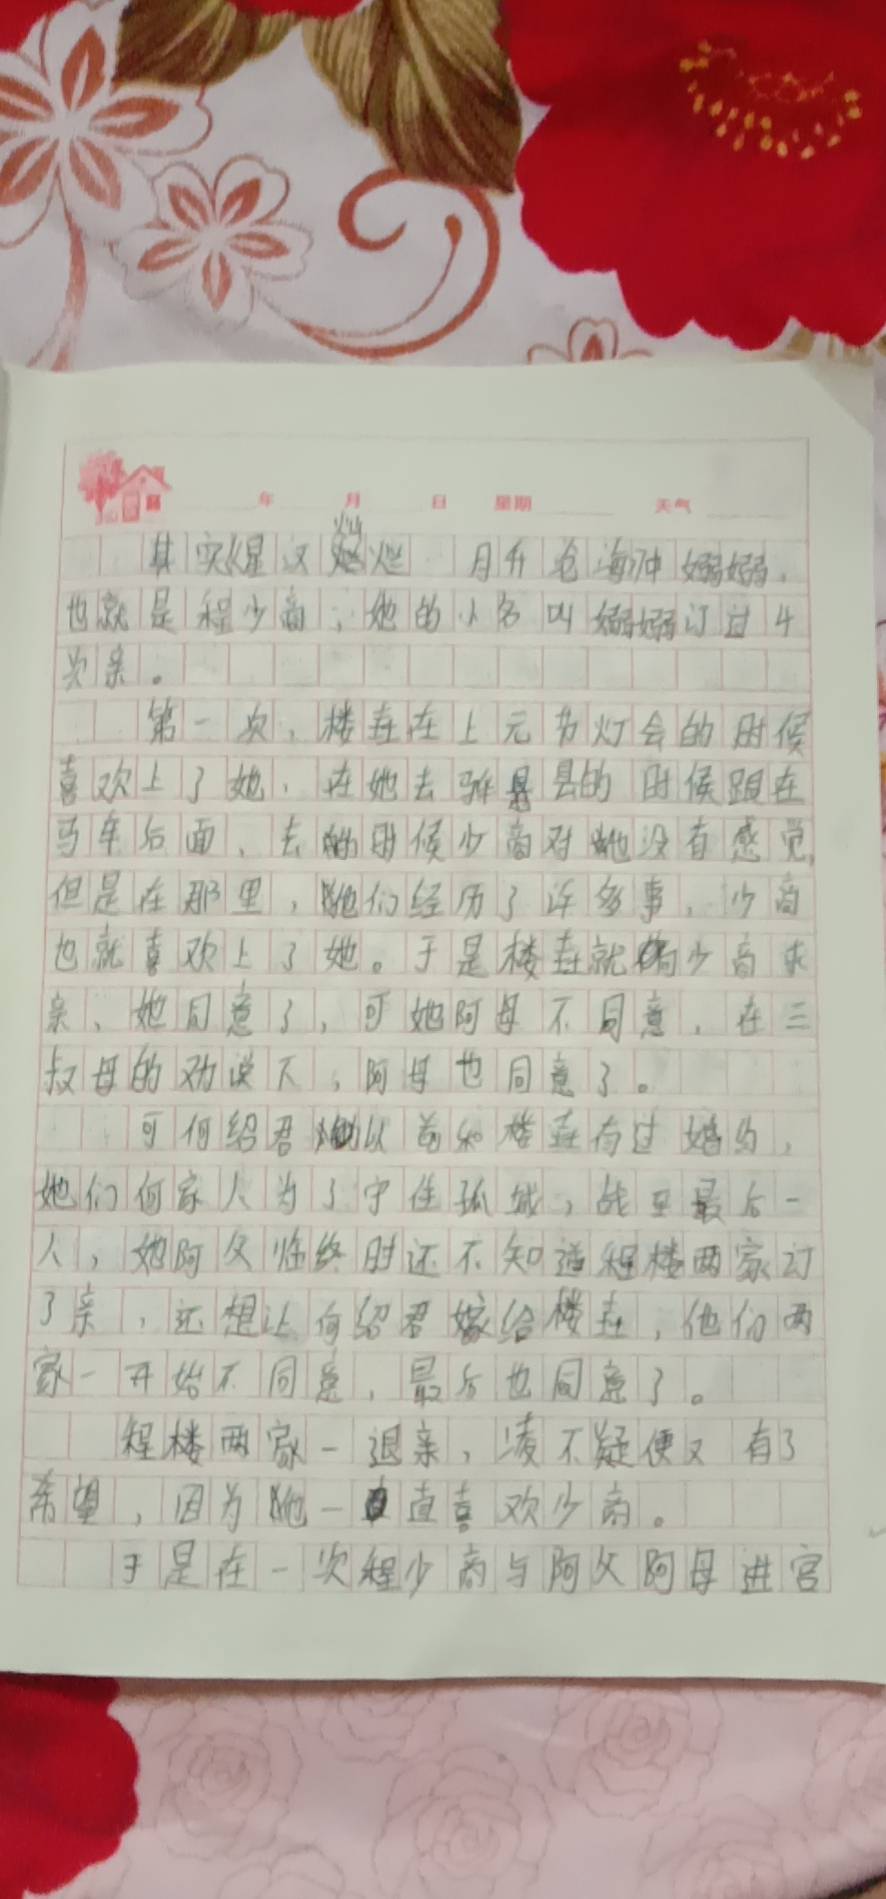 年 月 日 星期 天气
其实《星汉灿烂 月升沧海》中嫋嫋，
也就是程少商，她的小名叫嫋嫋订过4
次亲。
第一次，楼垚在上元节灯会的时候
喜欢上了她，在她去骅县的时候跟在
马车后面，去的时候少商对她没有感觉，
但是在那里，他们经历了许多事，少商
也就喜欢上了她。于是楼垚就向少商求
亲、她同意了，可她阿母不同意，在三
叔母的劝说下，阿母也同意了。
可何绍君以前和楼垚有过婚约，
她们何家人为了守住孤城，战至最后一
人，她阿父临终时还不知道程楼两家订
了亲，还想让何绍君嫁给楼垚，他们两
家一开始不同意，最后也同意了。
程楼两家一退亲，凌不疑便又有了
希望，因为他一直喜欢少商。
于是在一次程少商与阿父阿母进宫